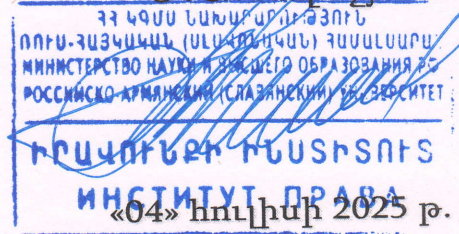 ՀՀ ԿԳՄՍ ՆԱԽԱՐԱՐՈՒԹՅՈՒՆ
ՌՈՒՍ-ՀԱՅԿԱԿԱՆ (ՍԼԱՎՈՆԱԿԱՆ) ՀԱՄԱԼՍԱՐԱ
МИНИСТЕРСТВО НАУКИ И ВЫСШЕГО ОБРАЗОВАНИЯ РФ
РОССИЙСКО-АРМЯНСКИЙ (СЛАВЯНСКИЙ) УНИВЕРСИТЕТ
ԻՐԱՎՈՒՆՔԻ ԻՆՍՏԻՏՈՒՏ
ИНСТИТУТ ПРАВА
«04» հուլիսի 2025 թ.